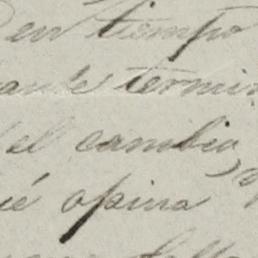 en tiempo
ante termin
el cambio,
ué opina